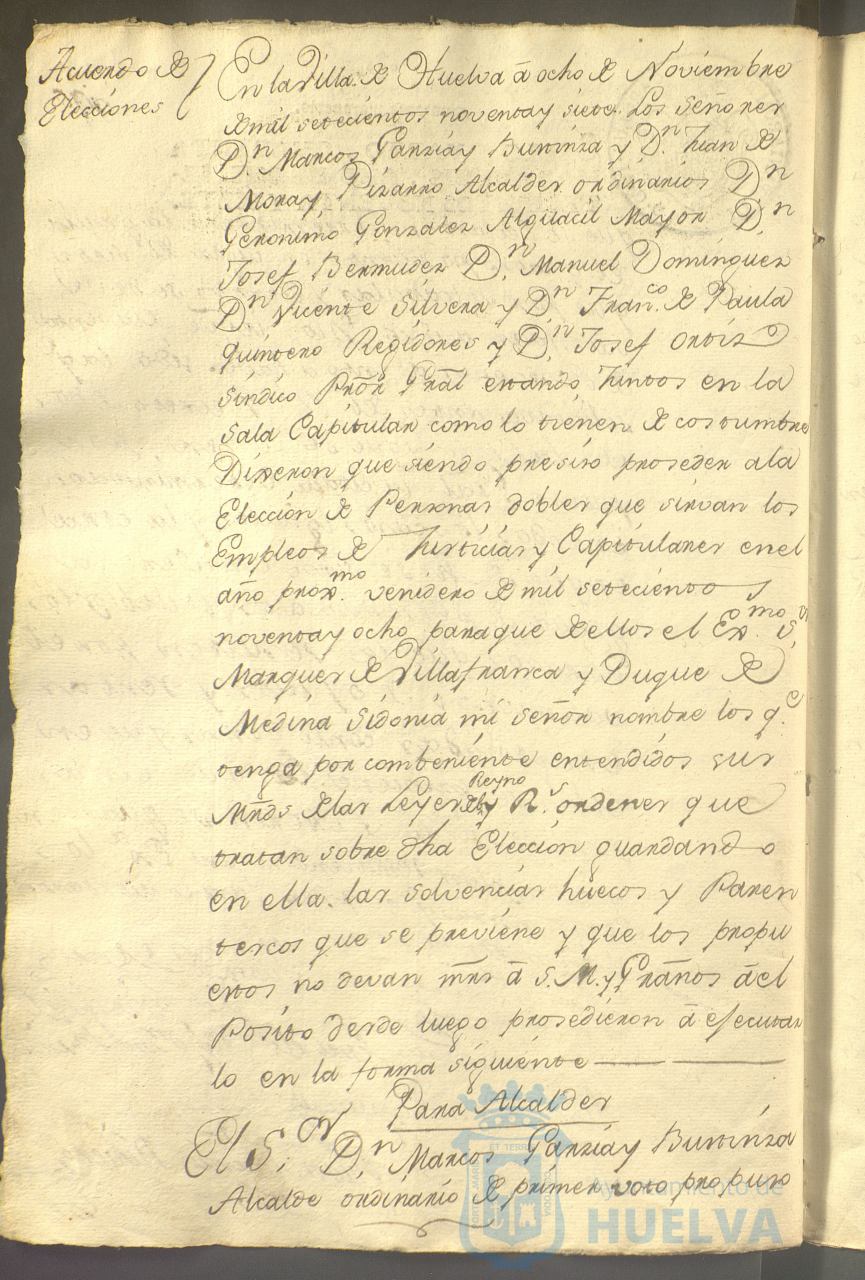 Acuerdo de
Elecciones
En la Villa de Huelva â ocho de Noviembre
de mil setecientos noventa y siete. Los Señores
Dn. Marcos Garzía y Burinza y Dn. Juan de
Mora y Pizarro Alcaldes ordinarios Dn
Geronimo Gonzalez Alguacil Mayor Dn.
Josef Bermudez Dn. Manuel Dominguez
Dn. Vicente Silvera y Dn Franco. de Paula
Quintero Regidores y Dn. Josef Ortiz
Sindico Pror. Gral estando Juntos en la
Sala Capitular como lo tienen de costumbre
Dixeron que siendo presiso proseder a la
Elección de Personas dobles que sirvan los
Empleos de Justicias y Capitulares en el
año proxmo. venidero de mil setecientos
noventa y ocho para que de ellos el Exmo. Sr.
Marques de Villafranca y Duque de
Medina Sidonia mi señor nombre los qe.
tenga por combeniente entendidos sus
Mrds de las Leyes del Reyno y Rs. ordenes que
tratan sobre dha Elección guardando
en ella las solvencias huecos y Paren
tercos que se previene y que los propu
estos no devan mrs â S. M. y Granos âel
Posito desde luego prosedieron â ejecutar
lo en la forma siguiente
Para Alcaldes
El Sor. Dn. Marcos Garzía y Burinza
Alcalde ordinario de primer voto propuso
Ayuntamiento de
HUELVA